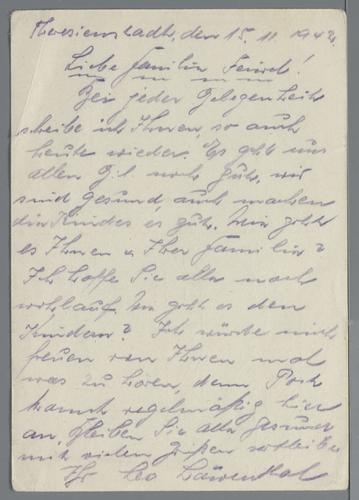 Theresienstadt, den 15. 11. 1943.
Liebe Familie
Bei jeder Gelegenheit
schreibe ich Ihnen, so auch
heute wieder. Es geht uns
allen G. l. noch gut, wir
sind gesund, auch machen
die Kinder es gut. Wie geht
es Ihnen u. Ihrer Familie?
Ich hoffe Sie alle noch
wohlauf. Wie geht es den
Kindern? Ich würde mich
freuen von Ihnen mal
was zu hören, denn Post
kommt regelmäßig hier
an, bleiben Sie alle gesund
mit vielen Grüßen verbleibe
Ihr Leo Löwenthal